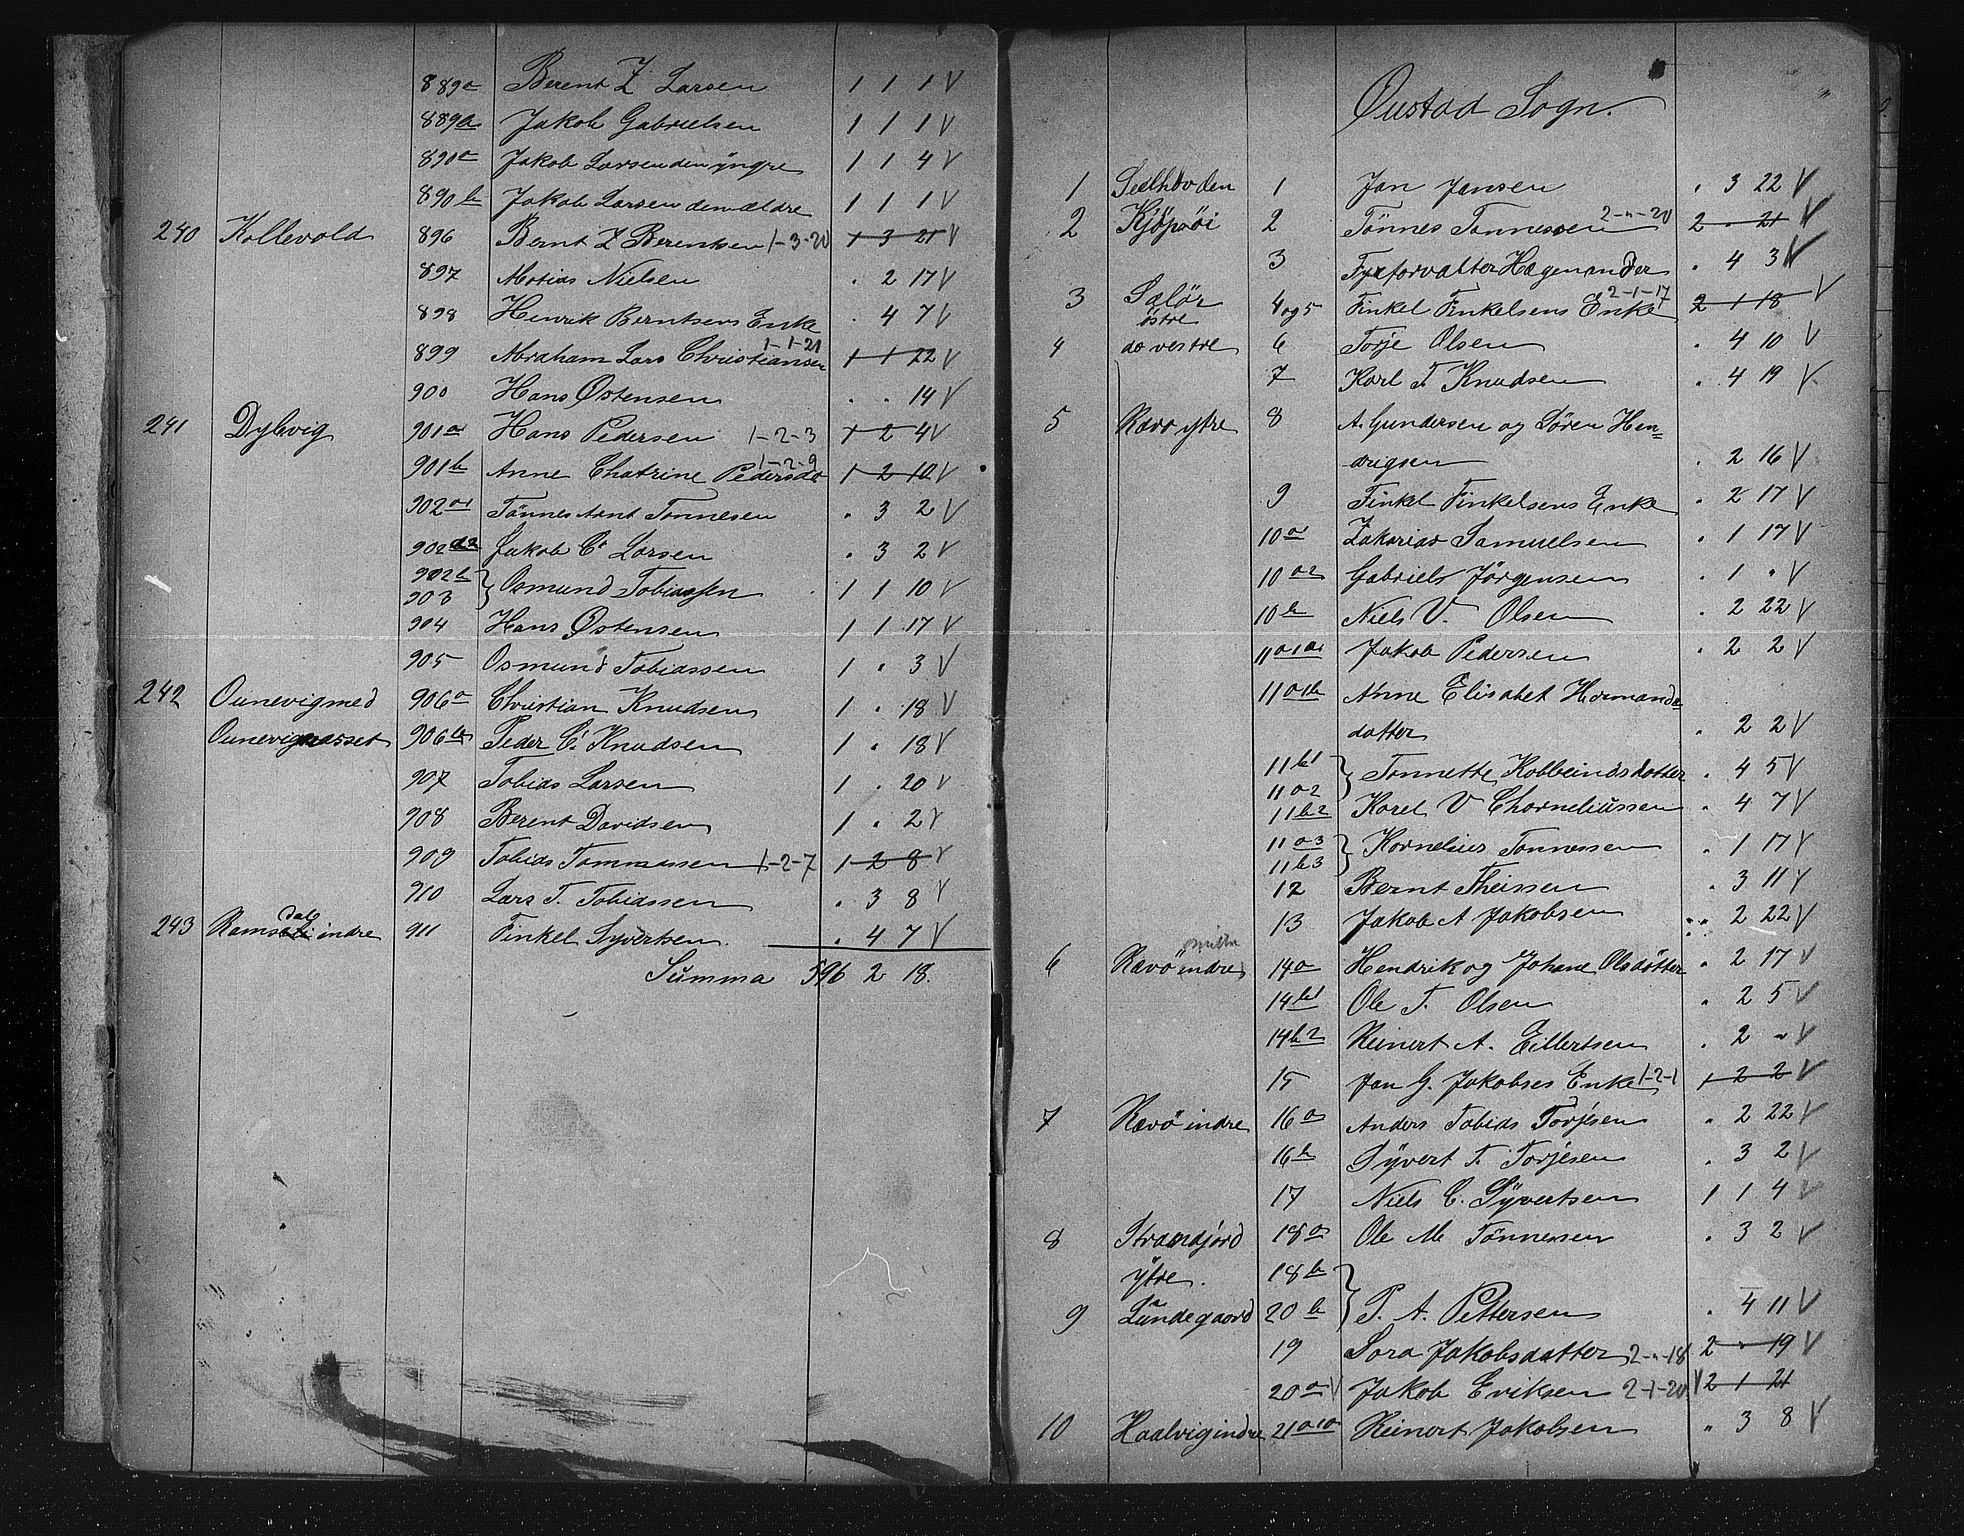 889a Berent Z Larsen 1 1 1 V
889a Jakob Gabrielsen 1 1 1 V
890a Jakob Larsen den yngre 1 1 4 V
890b Jakob Larsen den ældre 1 1 1 V
240 Kollevold 896 Bernt Z Berentsen 1-3-20 1 3 21 V
897 Matias Nielsen . 2 17 V
898 Henrik Berntsens Enke . 4 7 V
899 Abraham Lars Christiansen 1-1-21 1 1 22 V
900 Hans Østensen . . 14 V
241 Dybvig 901a Hans Pedersen 1-2-3 1 2 4 V
901b Anne Chatrine Pedersd 1-2-9 1 2 10 V
902a1 Tönnes Aant Tonnesen " 3 2 V
902a2 Jakob C. Larsen . 3 2 V
902b
903 } Osmund Tobiassen 1 1 10 V
904 Hans Østensen 1 1 17 V
905 Osmund Tobiassen 1 " 3 V
242 Ounevigmed 906a Christian Knudsen 1 " 18 V
906b Peder C. Knudsen 1 " 18 V
907 Tobias Larsen 1 . 20 V
908 Berent Davidsen 1 " 2 V
909 Tobias Tommassen 1-2-7 1 2 8 V
910 Lars T. Tobiassen . 3 8 V
243 Rams dal indre 911 Finkel Syvertsen . " 4 7 V
Summa 596 2 18.
Oustad Sogn.
1 Selhovden 1 Jan Jansen " 3 22 V
2 Kjöpsöi 2 Tönnes Tonnessen 2-"-20 2 " 21 V
3 Fyrforvalter Hagenander " 4 3 V
3 Salör östre 4 og 5 Finkel Finkelsens Enke 2-1-17 2 1 18 V
4 do vestre 6 Torje Olsen " 4 10 V
7 Karl T. Knudsen " 4 19 V
5 Rævø ytre 8 A. Gundersen og Sören Hen=
drigsen . 2 16 V
9 Finkel Finkelsens Enke " 2 17 V
10a1 Zakarias Samuelsen " 1 17 V
10a2 Gabriels Jörgensen " 1 " V
10b Niels V. Olsen . 2 22 V
11a1a1 Jakob Pedersen " 2 2 V
11a1b Anne Elisabet Hermands=
datter " 2 2 V
11b1 Tonnette Kolbeindsdatter " 4 5 V
11a2
11b2 } Karel V Chorneliussen " 4 7 V
11a3
11b3 } Kornelius Tonnessen " 1 17 V
12 Bernt Theissen " 3 11 V
13 Jakob A Jakobsen " 2 22 V
6 Rævö indre 14a Hendrik og Johane Olsdötter " 2 17 V
14b1 Ole T. Olsen " 2 5 V
14b2 Reinert A. Eilertsen . 2 " V
15 Jan G. Jakobses Enke 1-2-1 1 2 2 V
7 Rævö indre 16a Anders Tobias Torjesen " 2 22 V
16b Syvert T. Torjesen . 3 2 V
17 Niels C. Syvertsen 1 1 4 V
8 Strandfjord 18a Ole M Tönnessen . 3 2 V
ytre. 18b
9 Lundegaard 20b } P. A. Pettersen " 4 11 V
19 Sara Jakobsdatter 2-"-18 2 " 19 V
20a V Jakob Eriksen 2-1-20 V 2 1 21
10 Haalvig indre 21a1a Reinert Jakobsen " 3 8 V